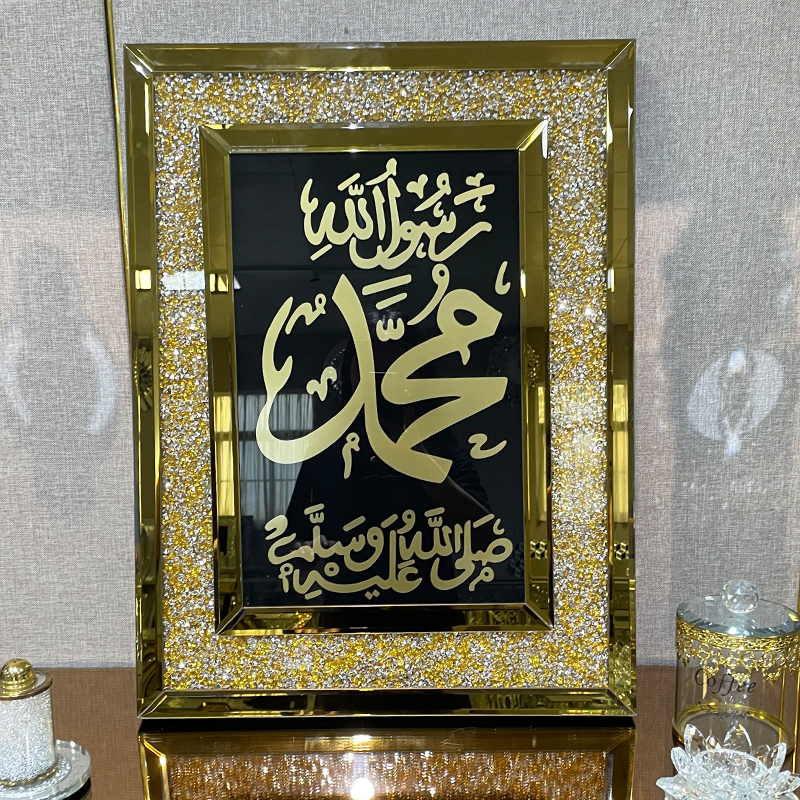 رَسُولُ اللَّهِ
مُحَمَّد
صَلَّى اللَّهُ عَلَيْهِ وَسَلَّمَ
Coffee